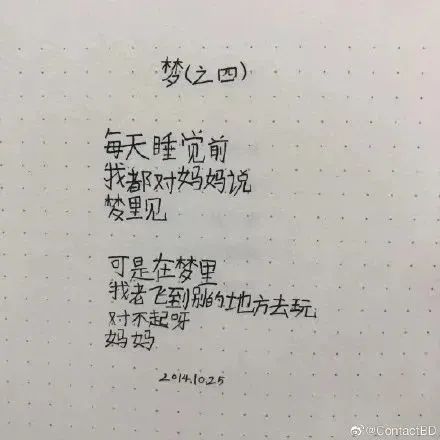 梦(之四)
每天睡觉前
我都对妈妈说
梦里见
可是在梦里
我老飞到别的地方去玩
对不起呀
妈妈
2014.10.25
@ContactBD